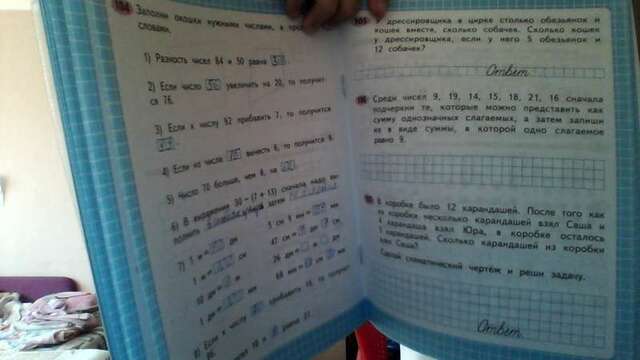 104 Заполни окошки нужными числами, а
словами.
1) Разность чисел 84 и 50 равна
2) Если число 56 увеличить на 20, то получит-
ся 76.
3) Если к числу 92 прибавить 7, то получится
99.
4) Если из числа вычесть 6, то получится
5) Число 70 больше, чем 8, на 62.
6) В выражении 30 – (7 + 13) сначала надо вы-
полнить затем
7) 1 м = дм
5 см 9 мм = мм
1 м = см
47 см = дм см
10 дм = м
26 дм = м дм
1 дм = мм
68 мм = см мм
8) Если к числу прибавить 19, то получит
105 У дрессировщика в цирке столько обезьянок и
кошек вместе, сколько собачек. Сколько кошек
у дрессировщика, если у него 5 обезьянок и
12 собачек?
Ответ
106 Среди чисел 9, 19, 14, 15, 18, 21, 16 сначала
подчеркни те, которые можно представить как
сумму однозначных слагаемых, а затем запиши
их в виде суммы, в которой одно слагаемое
равно 9.
107 В коробке было 12 карандашей. После того как
из коробки несколько карандашей взял Саша и
4 карандаша взял Юра, в коробке осталось
карандашей. Сколько карандашей из коробки
взял Саша?
Сделай схематический чертёж и реши задачу.
Ответ